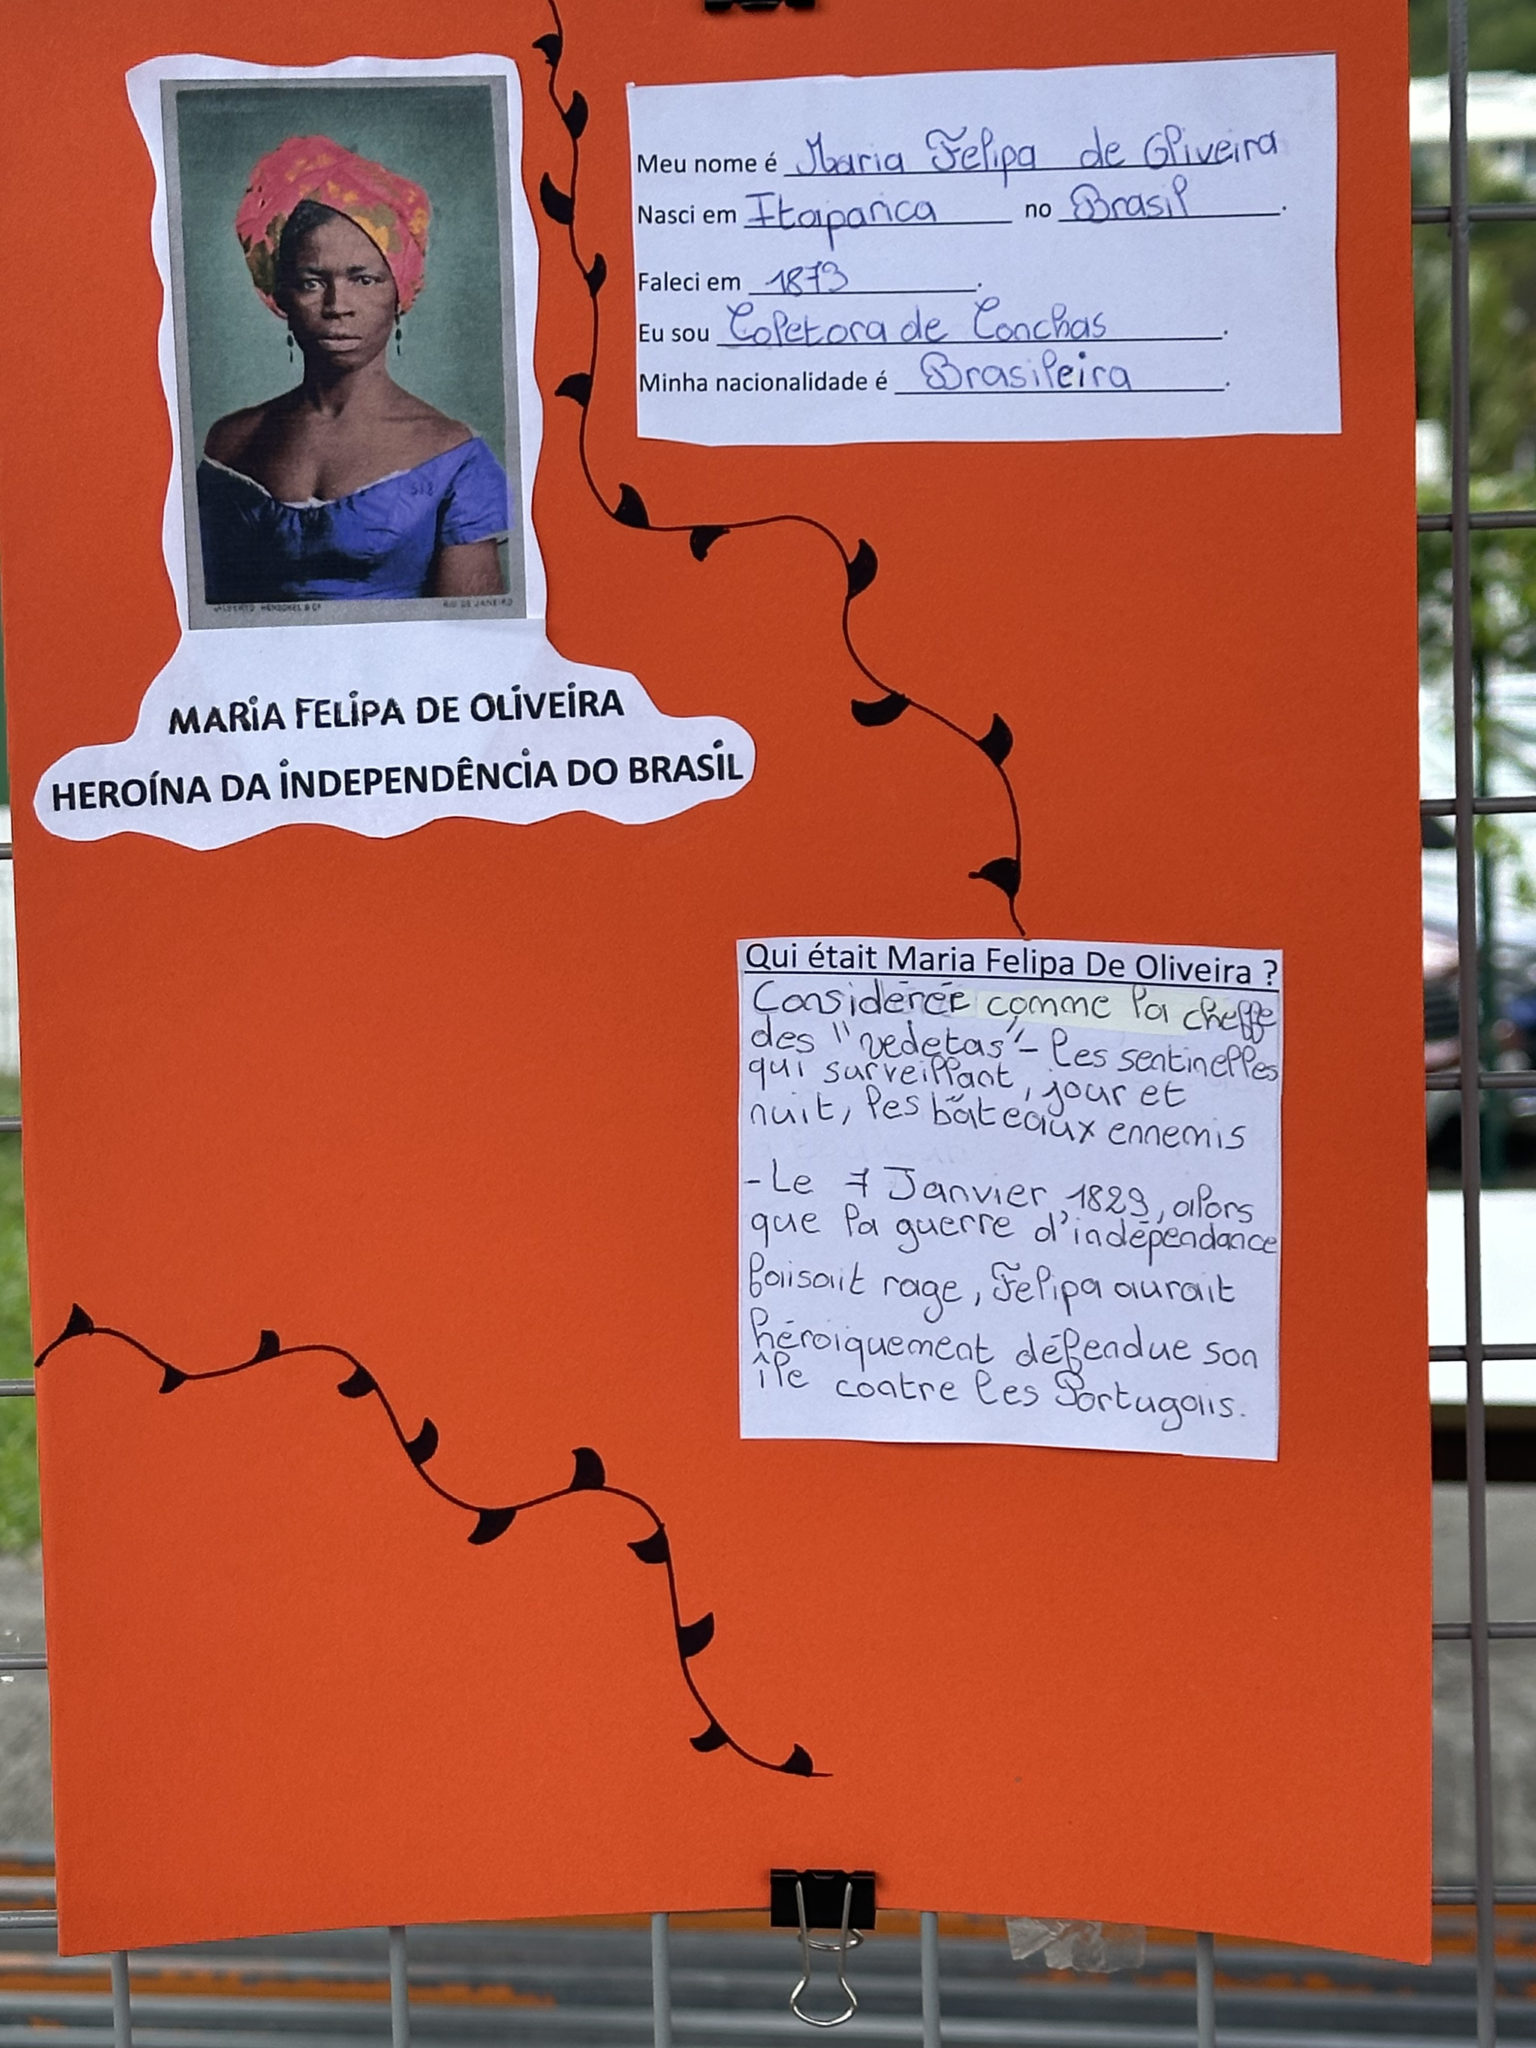 Meu nome é Maria Felipa de Oliveira
Nasci em Itaparica no Brasil.
Faleci em 1873.
Eu sou Coletora de Conchas.
Minha nacionalidade é Brasileira.
518
ALBERTO HENSCHEL & Cº RIO DE JANEIRO
MARIA FELIPA DE OLIVEIRA
HEROÍNA DA INDEPENDÊNCIA DO BRASIL
Qui était Maria Felipa De Oliveira ?
Considérée comme la cheffe
des "vedetas" - les sentinelles
qui surveillant, jour et
nuit, les bâteaux ennemis
- Le 7 Janvier 1823, alors
que la guerre d'indépendance
faisait rage, Felipa aurait
héroiquement défendue son
île contre les Portugais.